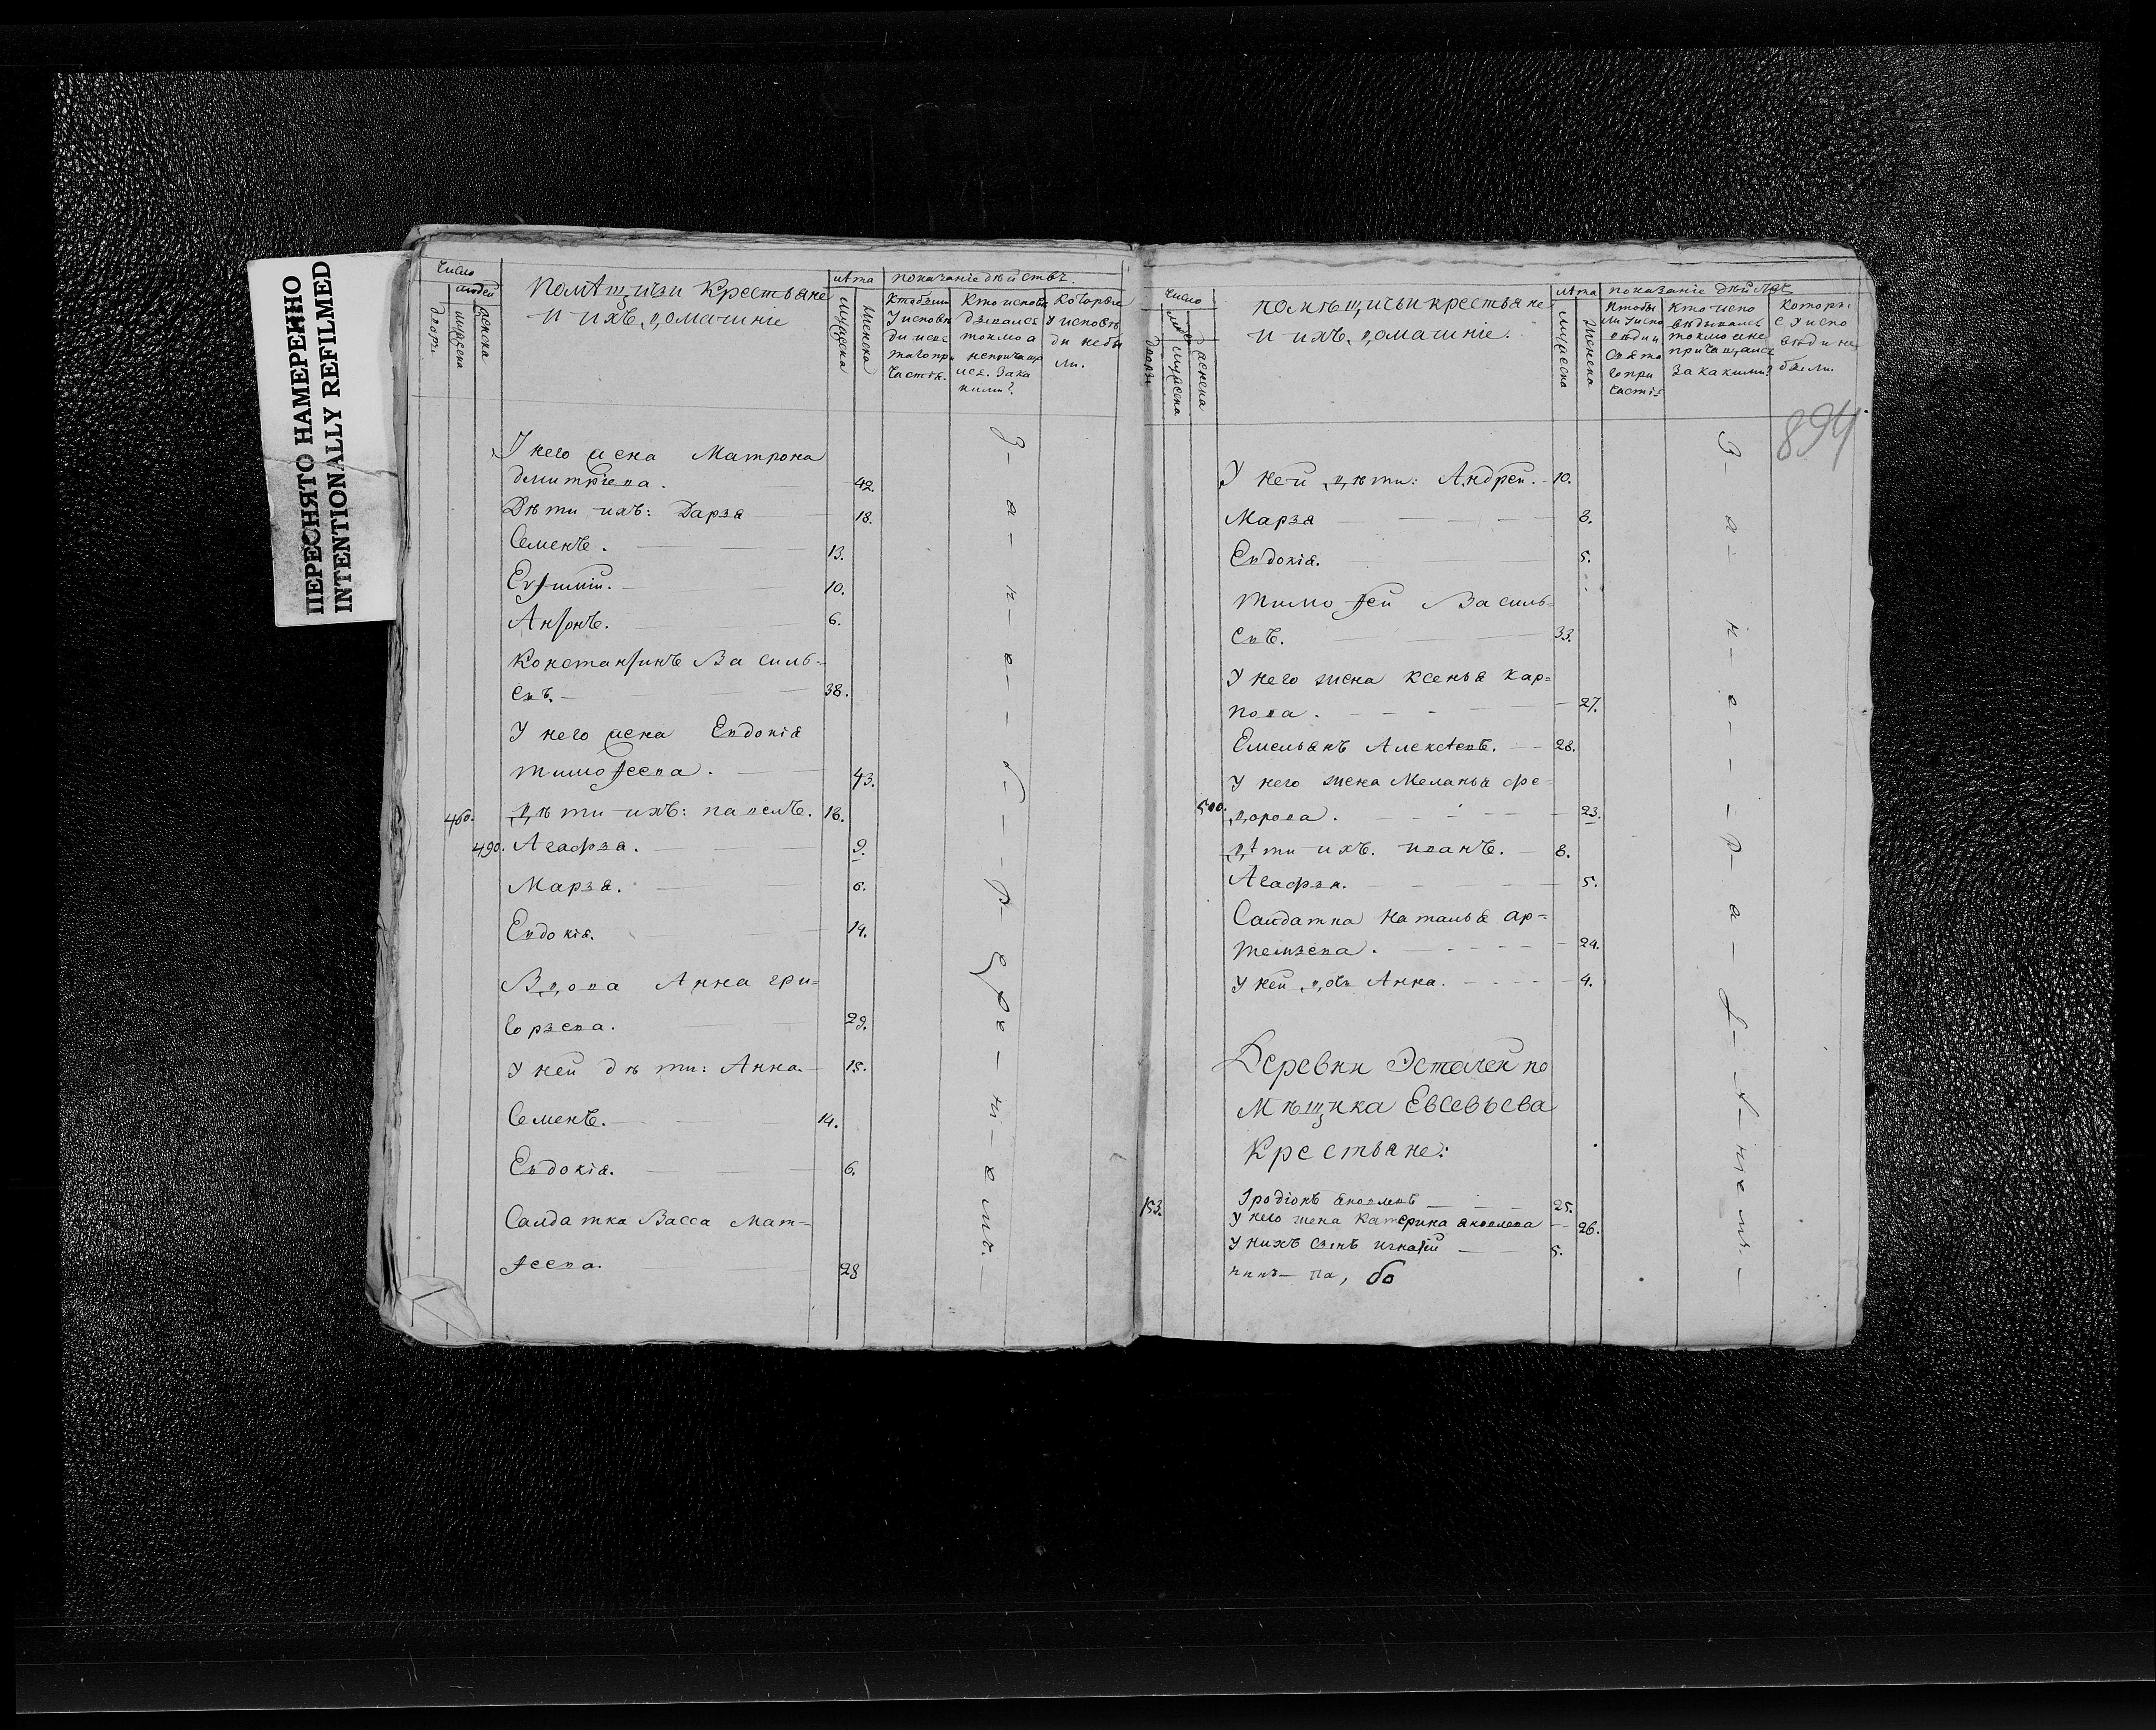 ПЕРЕСНЯТО НАМЕРЕННО
INTENTIONALLY REFILMED
число
людей
двори
мужеска
женска
Помѣщичьи Крестьяне
и ихъ домашніе
лѣта
мужеска
женска
показаніе дѣйствъ.
Кто были
у исповѣ
ди и свя
таго при
частія.
Кто исповѣ
дывался
токмо а
не причаща
ися. За ка
кими?
Которые
у исповѣ
ди не бы
ли.
У него жена Матрона
дмитріева. 42.
Дѣти ихъ: Дарья 18.
Семенъ. 13.
Евфимій. 10.
Анфонъ. 6.
Констанфинъ Василь=
евъ. 38.
У него жена Евдокія
тимофеева. 43.
460. дѣти ихъ: павелъ. 18.
490. Агафья. 9.
Марья. 6.
Евдокія. 14.
Вдова Анна гри=
горьева. 29.
У ней дѣти: Анна. 15.
Семенъ. 14.
Евдокія. 6.
Салдатка Васса Мат=
феева. 28
число
двори
мужеска
женска
помѣщичьи крестьяне
и ихъ домашніе.
лѣта
мужеска
женска
показаніе дѣйствъ
Кто бы
ли у испо
вѣди и
свята
го при
частія
Кто испо
вѣдывалсь
токмо а не
причащаися
за какими?
Которы
е у испо
вѣди не
были.
894
У ней дѣти: Андрей. 10.
Марья 8.
Евдокія. 5.
Тимофей Василь=
евъ. 33.
У него жена Ксенья Кар=
пова. 27.
Емельянъ Алексѣевъ. 28.
У него жена Меланья фе=
500. дорова. 23.
дѣти ихъ. иванъ. 8.
Агафья. 5.
Салдатка Наталья ар=
темьева. 24.
У ней дочь Анна. 4.
Деревни Эстачей по
мѣщика Евсевьева
Крестьяне:
153. Іродіонъ яковлевъ 25.
У него жена Катерина яковлева 26.
У нихъ сынъ игнатій 5.